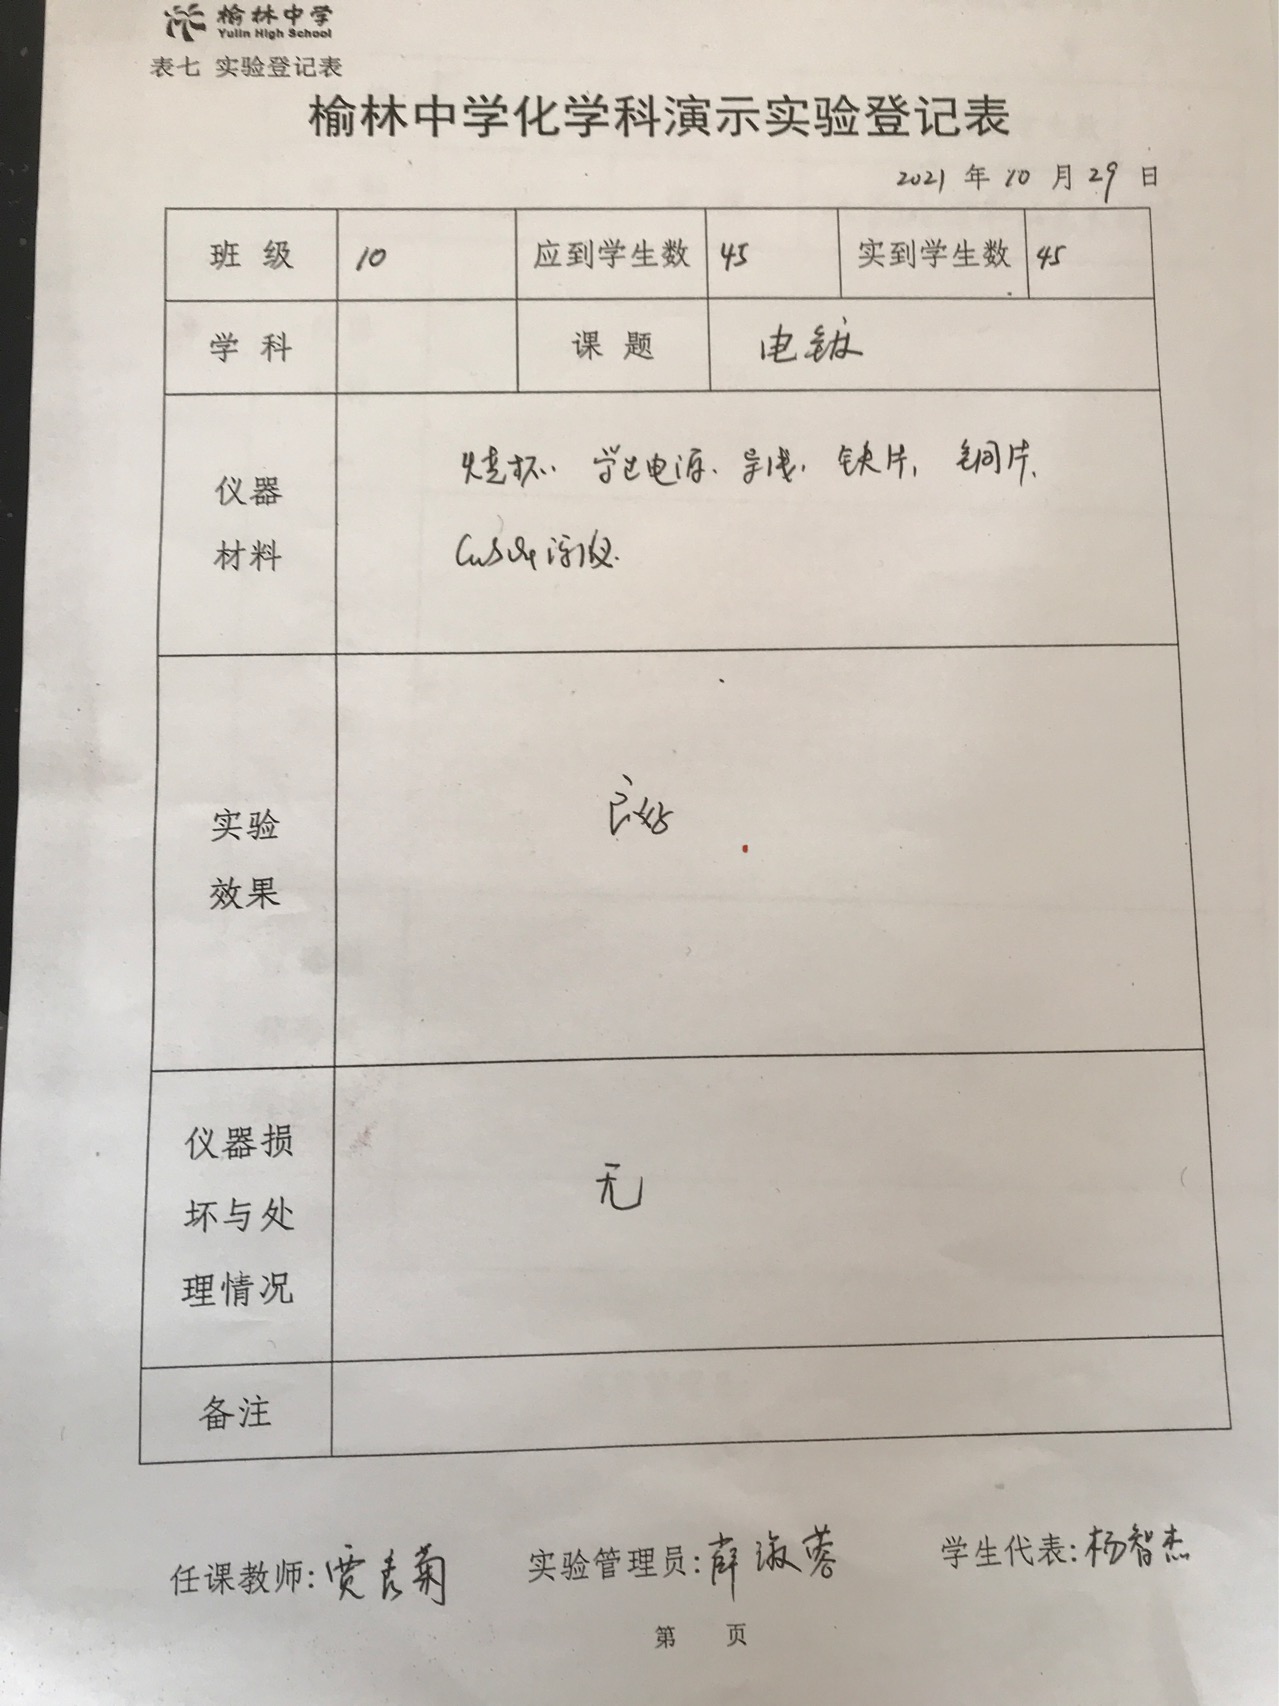 榆林中学
Yulin High School
表七 实验登记表
榆林中学化学科演示实验登记表
2021 年 10 月 29 日
班 级 10 应到学生数 45 实到学生数 45
学 科 课 题 电镀
仪器
材料
烧杯、学生电源、导线、铁片、铜片、
CuSO4溶液.
实验
效果
良好
仪器损
坏与处
理情况
无
备注
任课教师: 贾秀菊 实验管理员: 薛淑蓉 学生代表: 杨智杰
第 页